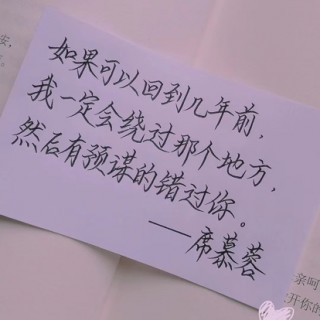 如果可以回到几年前,
我一定会绕过那个地方,
然后有预谋的错过你。
——席慕蓉
安,
亲呵
开你的